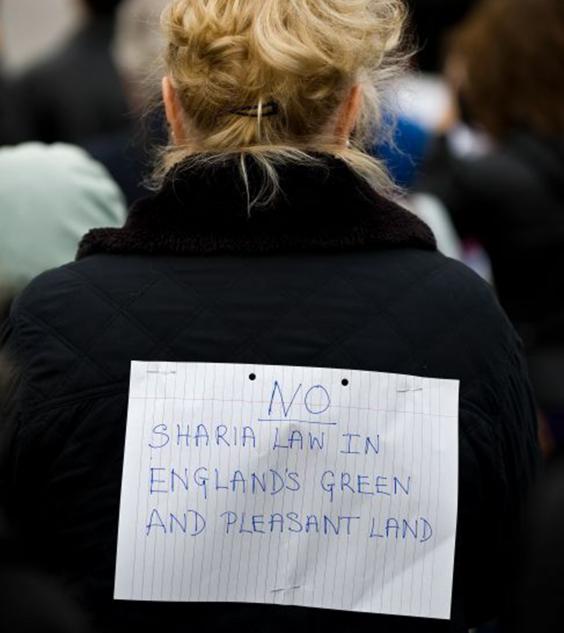 NO
SHARIA LAW IN
ENGLAND'S GREEN
AND PLEASANT LAND